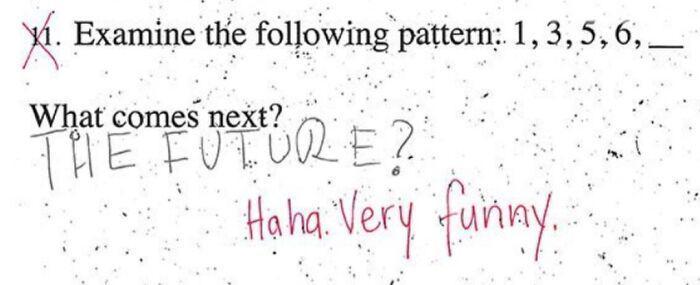 11. Examine the following pattern: 1, 3, 5, 6, __
What comes next?
THE FUTURE?
Haha. Very funny.